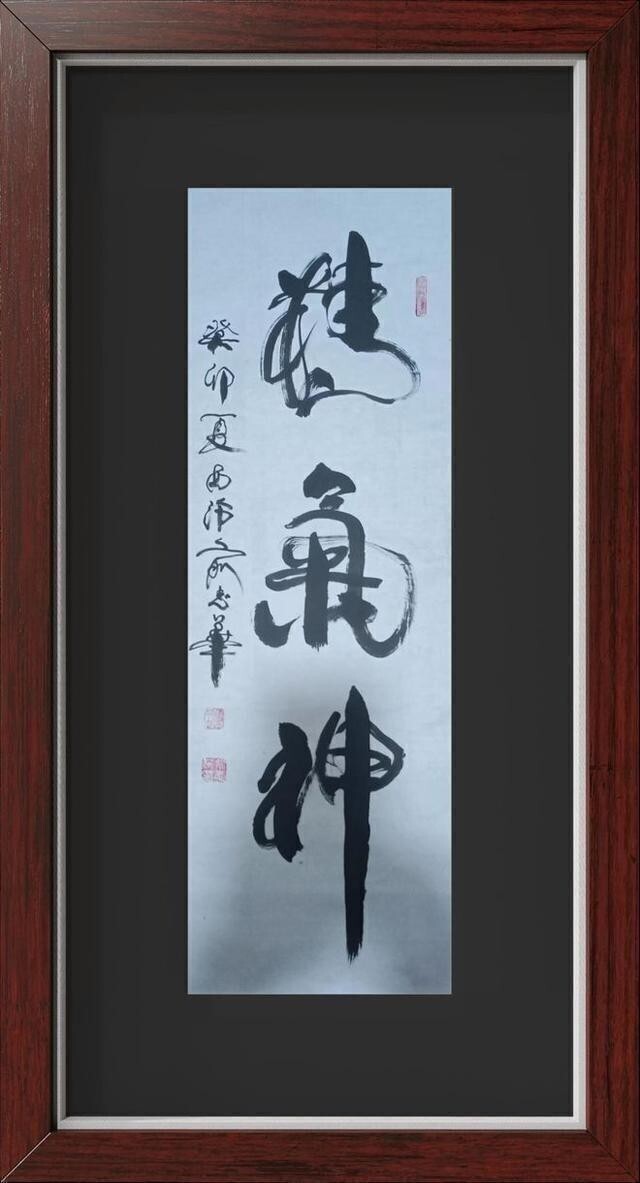 精氣神
癸卯夏西沛俞忠華